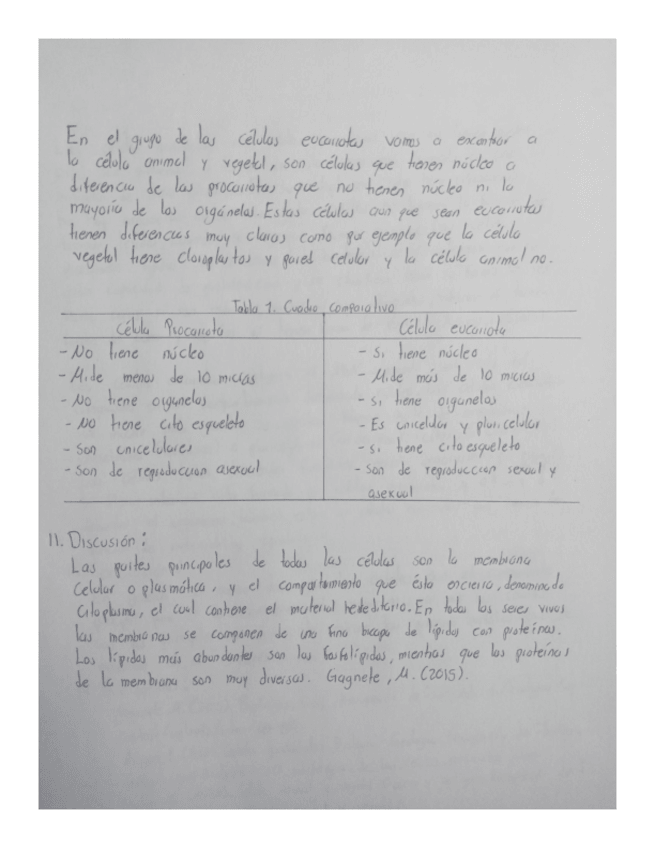 En el grupo de las células eucariotas vamos a encontrar a
la célula animal y vegetal, son células que tienen núcleo a
diferencia de las procariotas que no tienen núcleo ni la
mayoría de los orgánelos. Estas células aun que sean eucariotas
tienen diferencias muy claras como por ejemplo que la célula
vegetal tiene cloroplastos y pared celular y la célula animal no.
Tabla 1. Cuadro comparativo
Célula Procariota
Célula eucariota
- No tiene núcleo
- Si tiene núcleo
- Mide menos de 10 micras
- Mide más de 10 micras
- No tiene organelos
- Si tiene organelos
- No tiene cito esqueleto
- Es unicelular y pluricelular
- Son unicelulares
- Si tiene cito esqueleto
- Son de reproduccion asexual
- Son de reproduccion sexual y
asexual
11. Discusión:
Las partes principales de todas las células son la membrana
celular o plasmática, y el compartimiento que ésta encierra, denominado
citoplasma, el cual contiene el material hereditario. En todos los seres vivos
las membranas se componen de una fina bicapa de lípidos con proteínas.
Los lípidos más abundantes son los fosfolípidos, mientras que las proteínas
de la membrana son muy diversas. Gagnete, M. (2015).